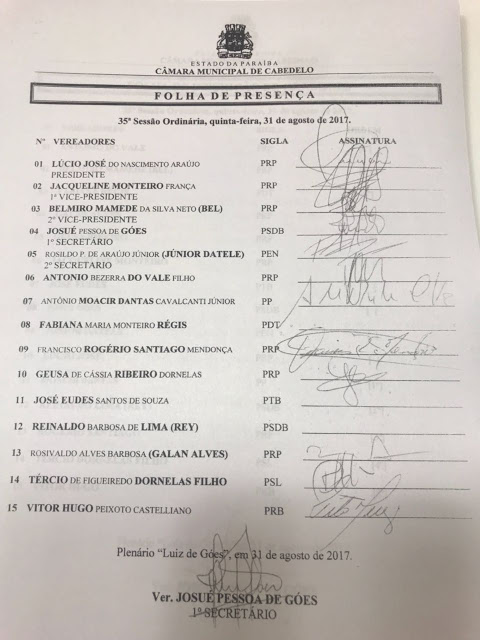 ESTADO DA PARAÍBA
CÂMARA MUNICIPAL DE CABEDELO
FOLHA DE PRESENÇA
35ª Sessão Ordinária, quinta-feira, 31 de agosto de 2017.
Nº VEREADORES SIGLA ASSINATURA
01 LÚCIO JOSÉ DO NASCIMENTO ARAÚJO PRP
PRESIDENTE
02 JACQUELINE MONTEIRO FRANÇA PRP
1ª VICE-PRESIDENTE
03 BELMIRO MAMEDE DA SILVA NETO (BEL) PRP
2º VICE-PRESIDENTE
04 JOSUÉ PESSOA DE GÓES PSDB
1º SECRETÁRIO
05 ROSILDO P. DE ARAÚJO JÚNIOR (JÚNIOR DATELE) PEN
2º SECRETARIO
06 ANTONIO BEZERRA DO VALE FILHO PRP
07 ANTÔNIO MOACIR DANTAS CAVALCANTI JÚNIOR PP
08 FABIANA MARIA MONTEIRO RÉGIS PDT
09 FRANCISCO ROGÉRIO SANTIAGO MENDONÇA PRP
10 GEUSA DE CÁSSIA RIBEIRO DORNELAS PRP
11 JOSÉ EUDES SANTOS DE SOUZA PTB
12 REINALDO BARBOSA DE LIMA (REY) PSDB
13 ROSIVALDO ALVES BARBOSA (GALAN ALVES) PRP
14 TÉRCIO DE FIGUEIREDO DORNELAS FILHO PSL
15 VITOR HUGO PEIXOTO CASTELLIANO PRB
Plenário “Luiz de Góes”, em 31 de agosto de 2017.
Ver. JOSUÉ PESSOA DE GÓES
1º SECRETÁRIO